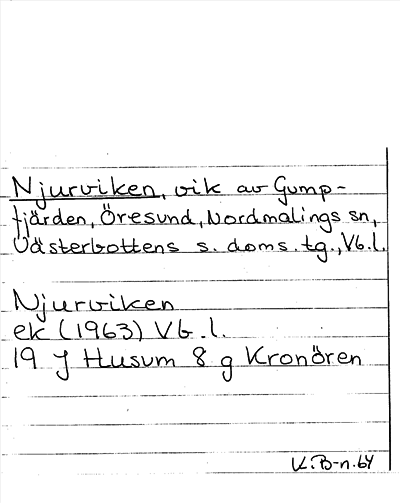 Njurviken, vik av Gump-
fjärden, Öresund, Nordmalings sn,
Västerbottens s. doms. tg., Vb.l.
Njurviken
ek (1963) Vb.l.
19 J Husum 8 g Kronören
K.B-n.64